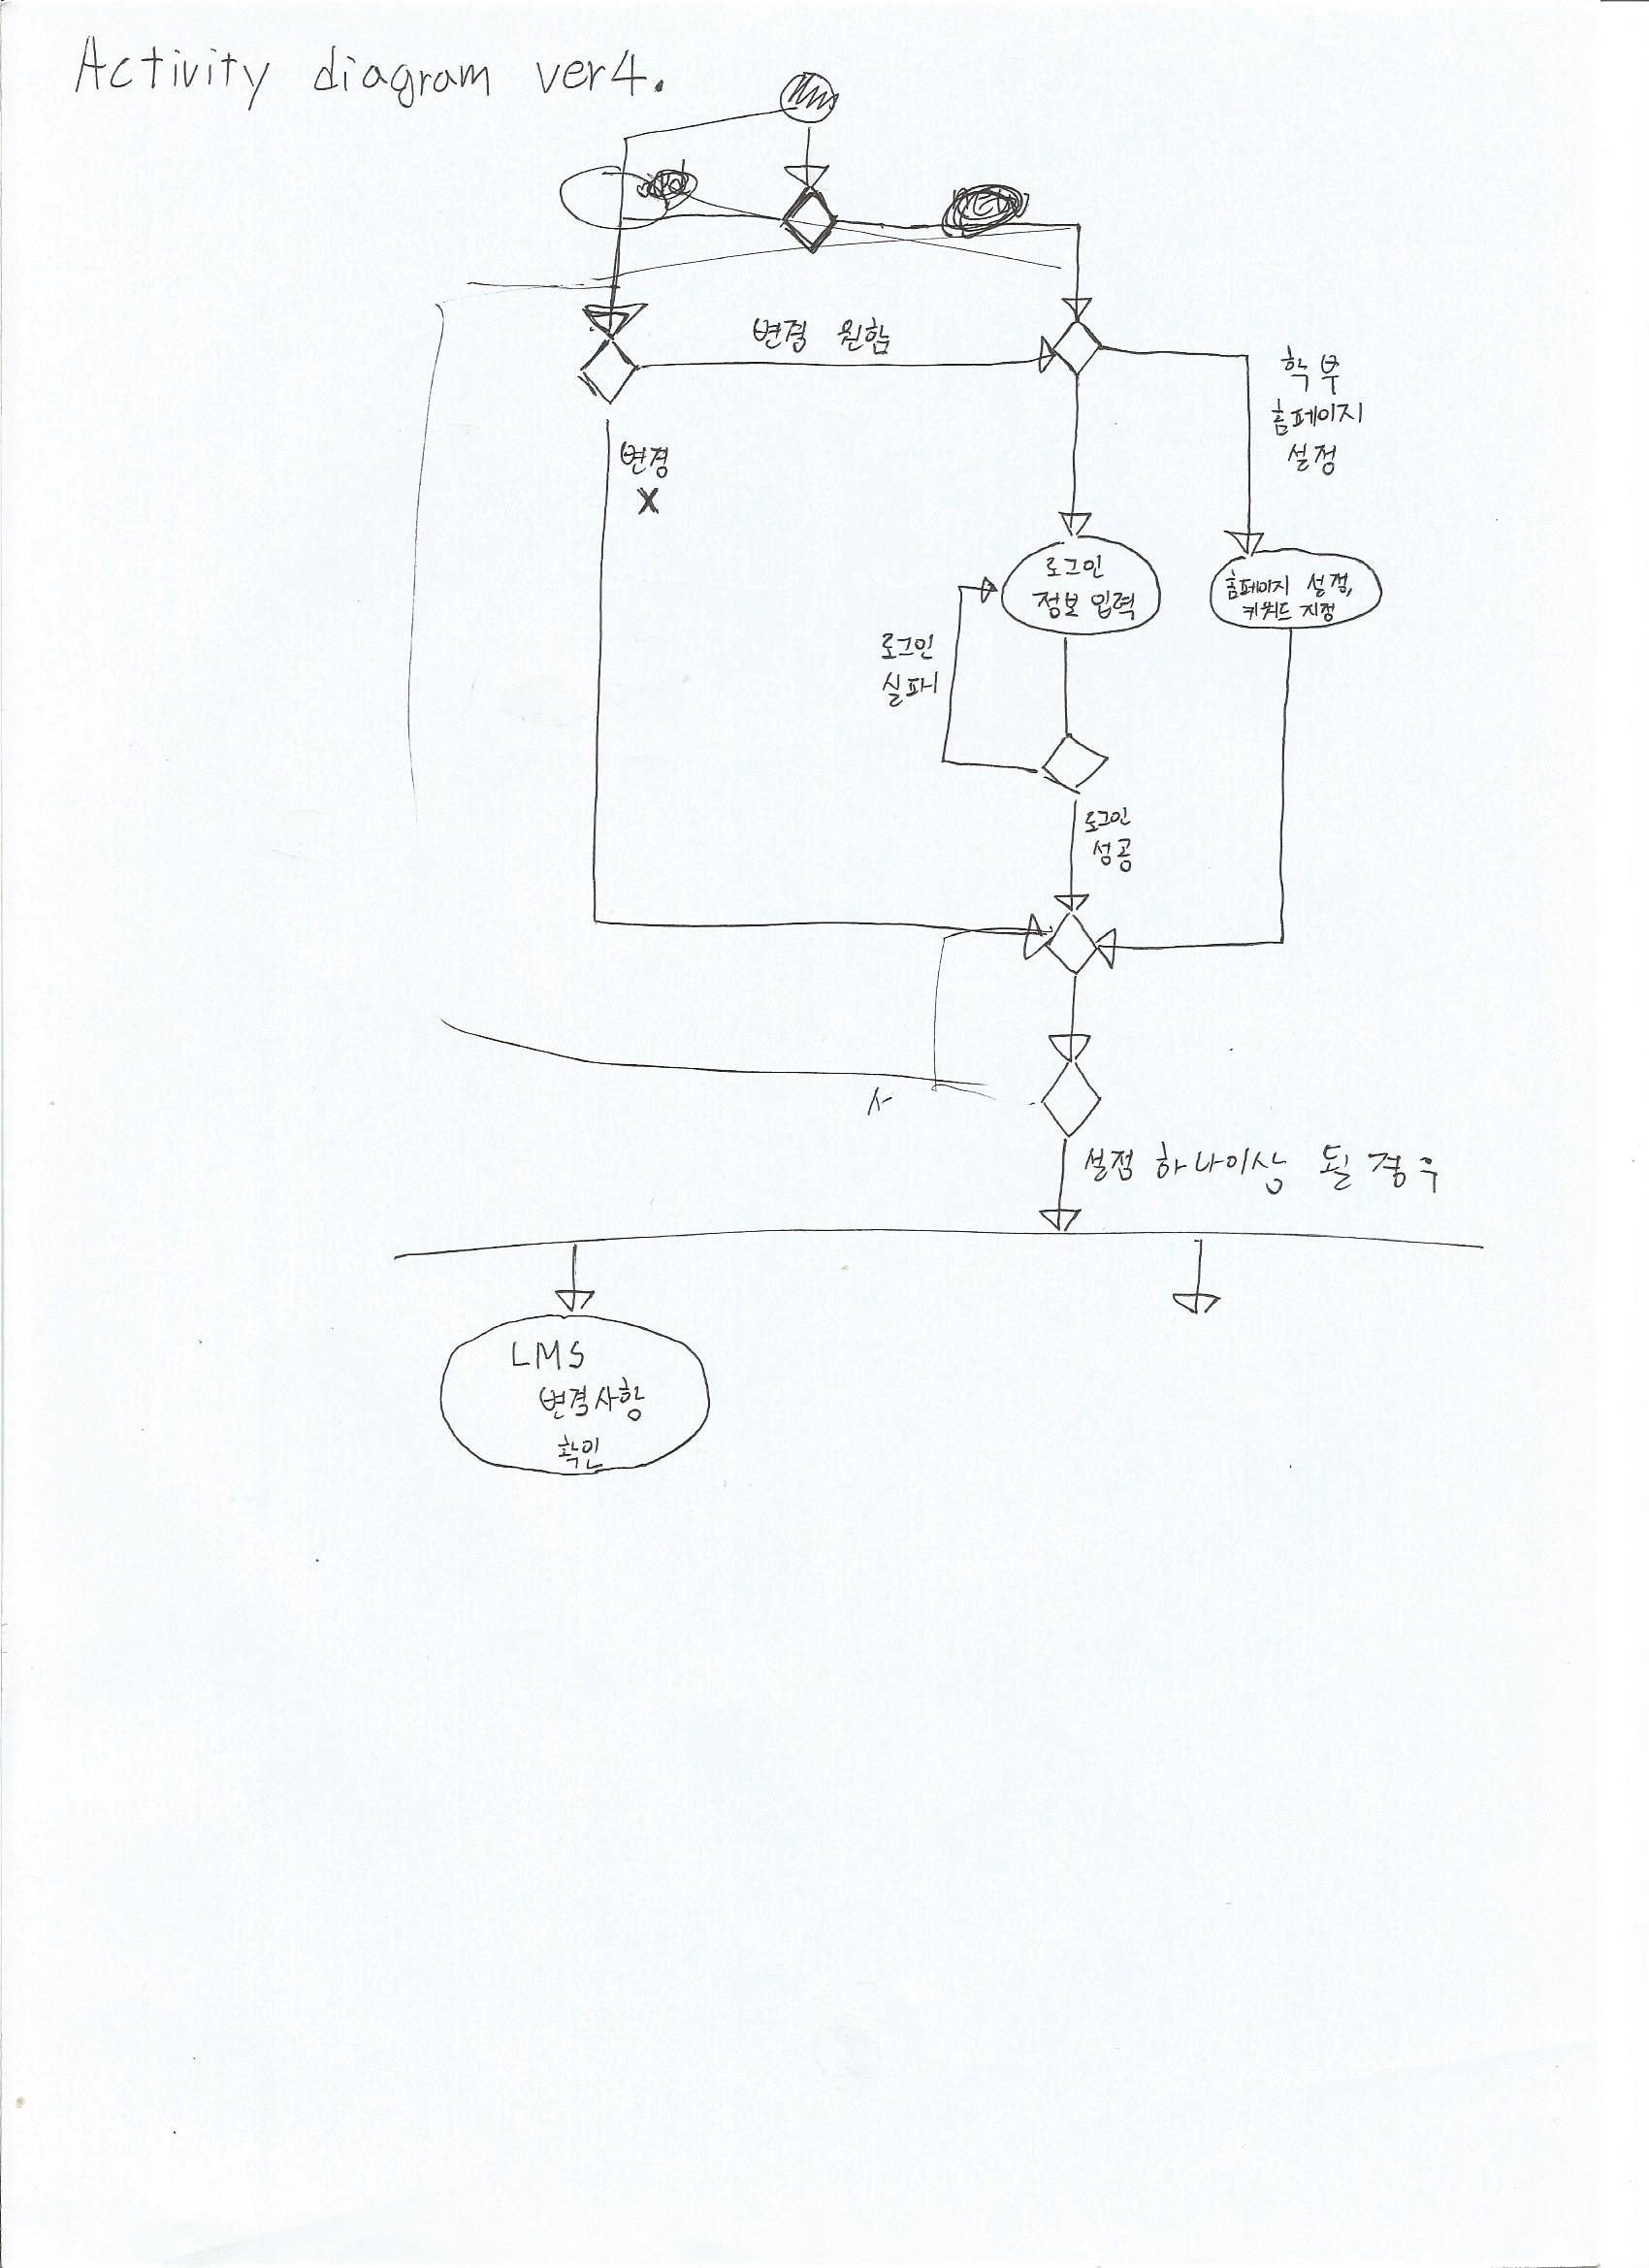 Activity diagram ver4.
변경 원함
학부
홈페이지
설정
변경
X
로그인
정보 입력
홈페이지 설정,
키워드 지정
로그인
실패
로그인
성공
사
설정 하나이상 될 경우
LMS
변경사항
확인